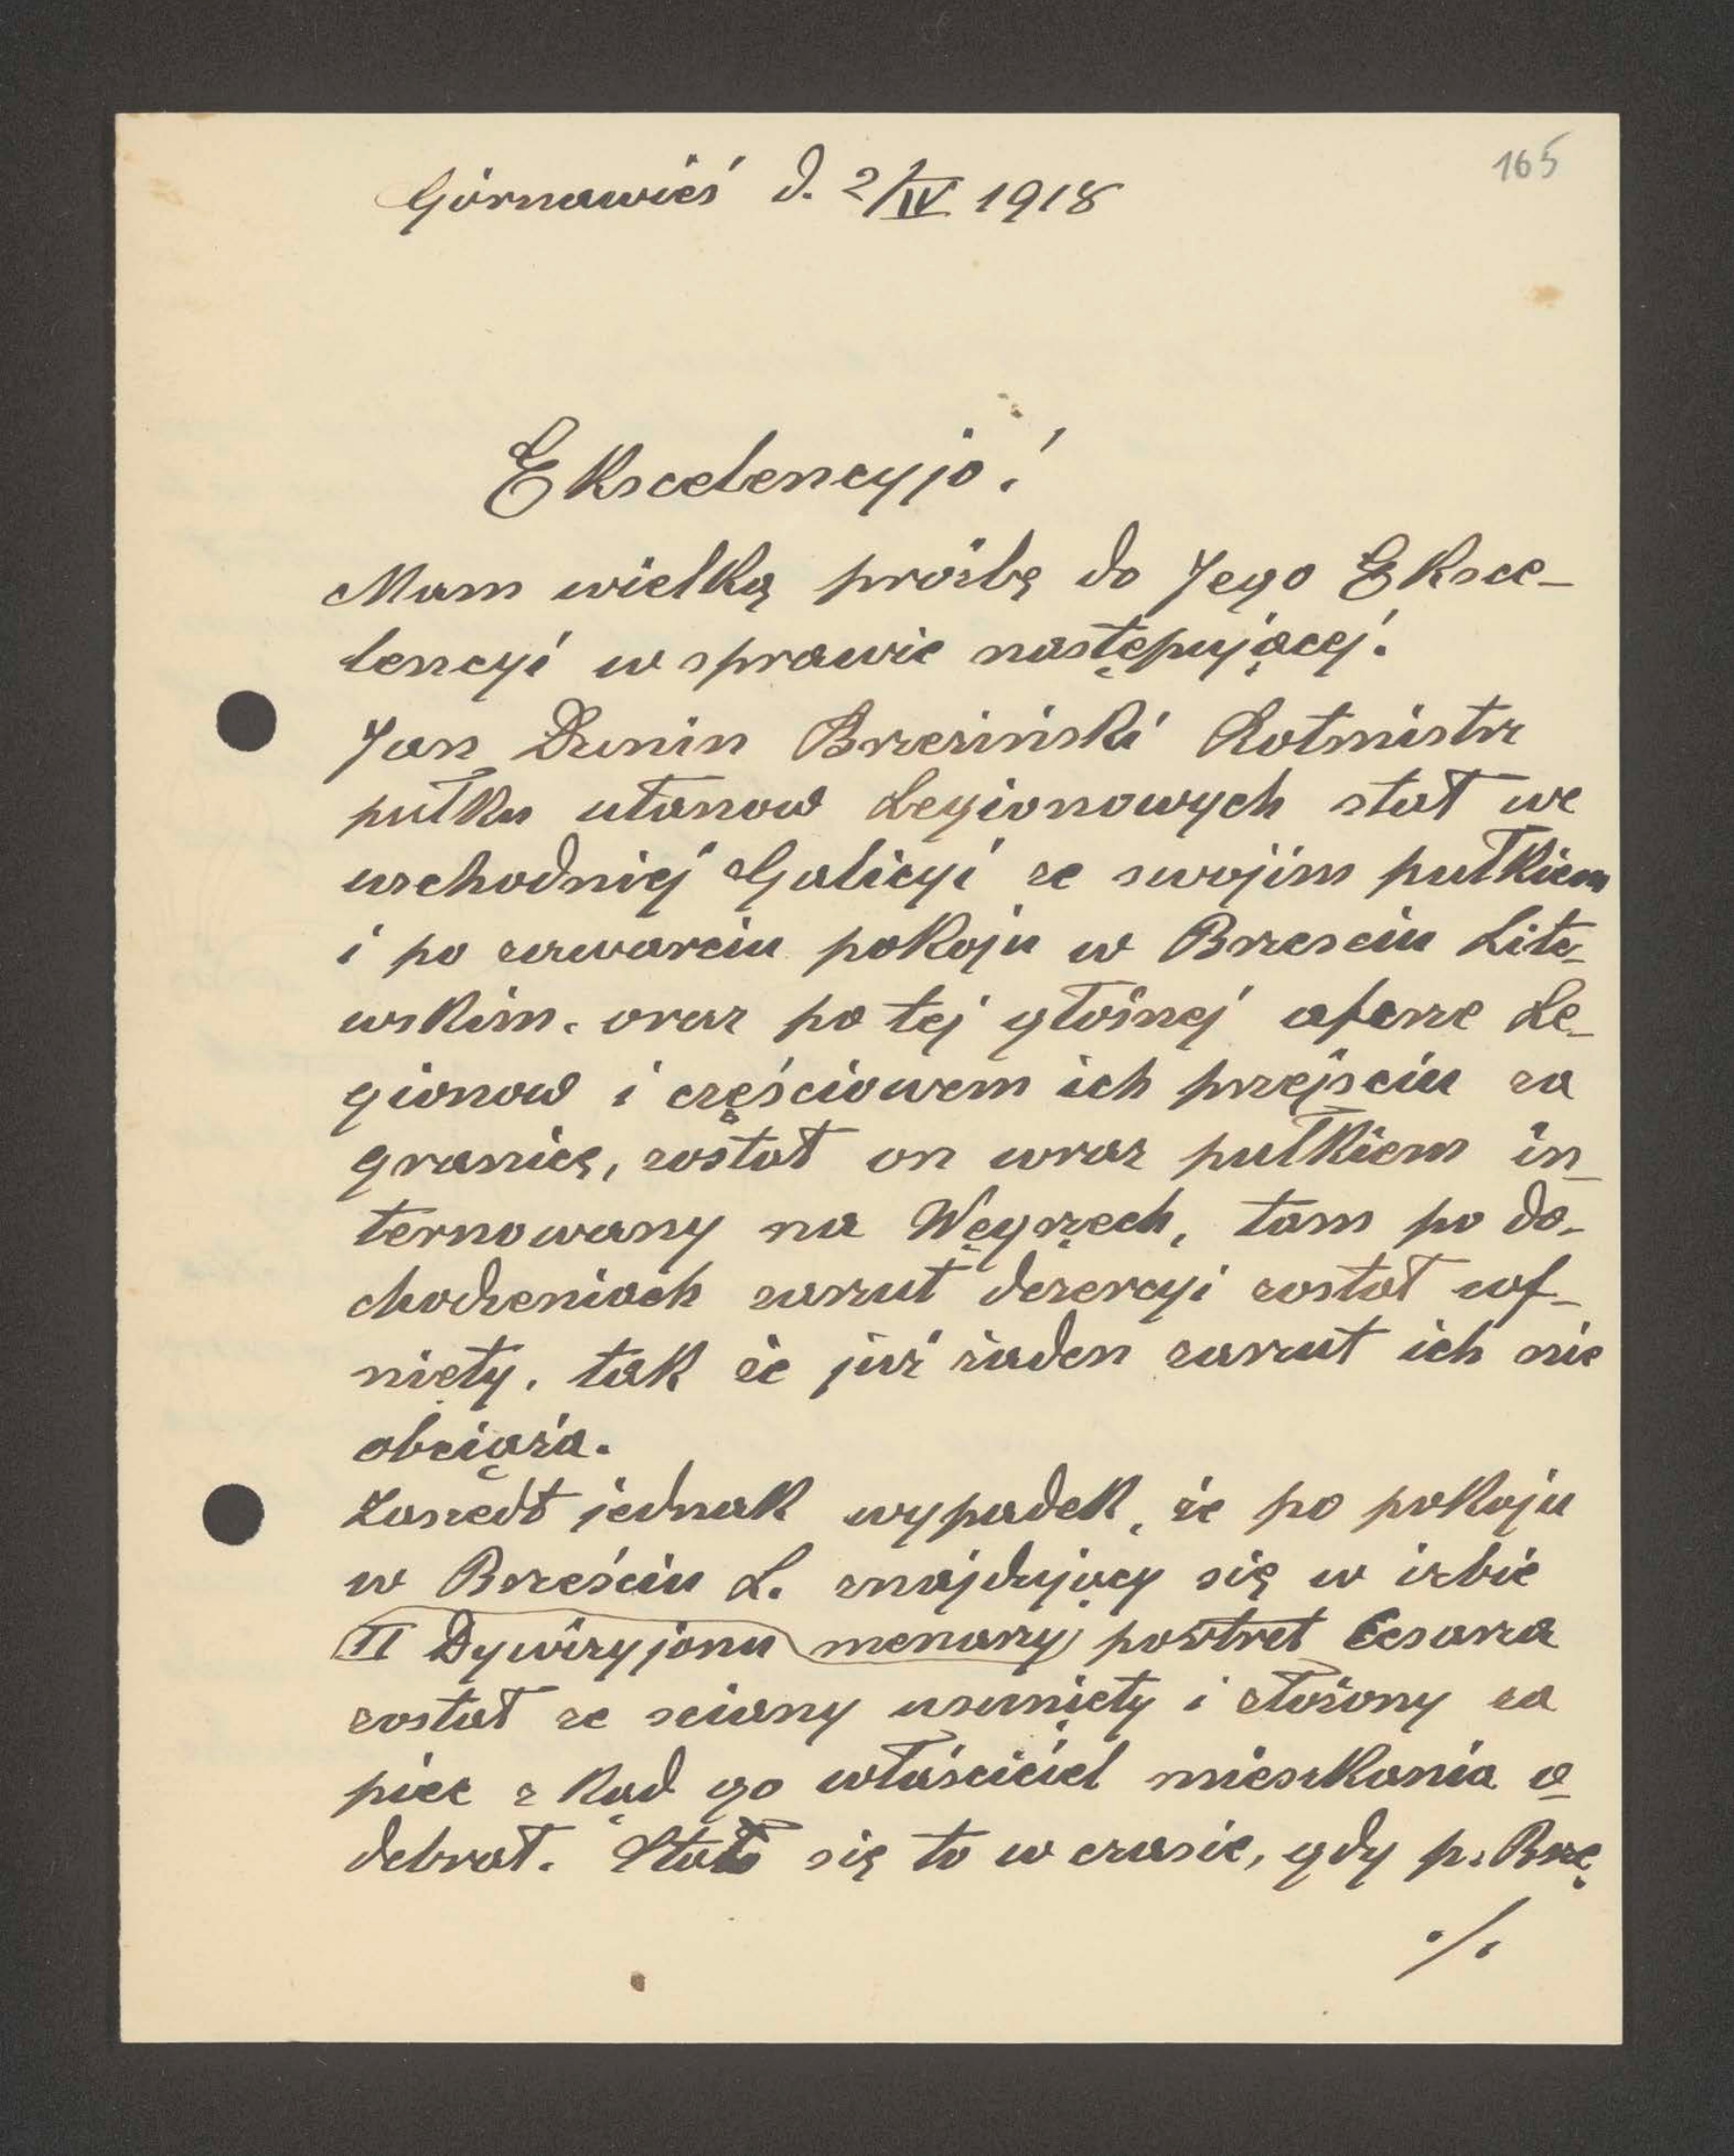 165
Górnawieś d. 2/IV 1918
Ekscelencyjo!
Mam wielką prośbę do Jego Eksce-
lencyi w sprawie następującej.
Jan Dunin Brzeziński Rotmistrz
pułku ułanow Legionowych stał we
wschodniej Galicyi ze swojim pułkiem
i po zawarciu pokoju w Brzesciu Lito-
wskim. oraz po tej głośnej aferze Le-
gionow i częściowem ich przejsciu za
granicę, został on wraz pułkiem in-
ternowany na Węgrzech, tam po do-
chodzeniach zarzut dezercyi został cof-
nięty. tak że już żaden zarzut ich nie
obciąża.
Zaszedł jednak wypadek, że po pokoju
w Brześciu L. znajdujący się w izbie
II Dywizyjonu menarzy portret Cesarza
został ze sciany usunięty i złożony za
piec z kąd go właściciel mieszkania o-
debrał. Stało się to w czasie, gdy p. Brzę
./.